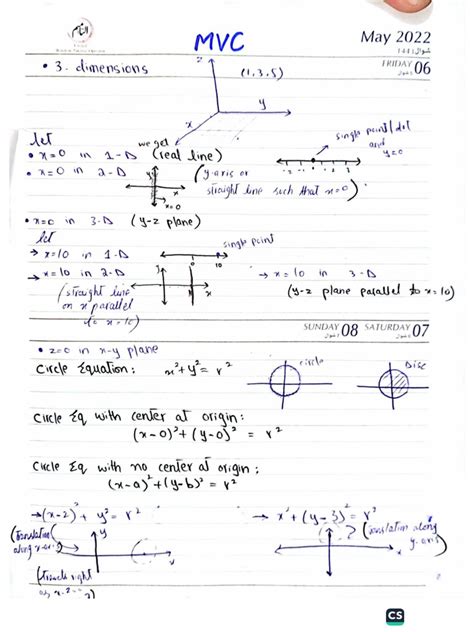 MVC
May 2022
شوال 1443
FRIDAY 06
• 3. dimensions
z
(1,3,5)
y
x
let
we get
single point/dot
and
y=0
• x=0 in 1-D (real line)
• x=0 in 2-D
(y.axis or
straight line such that x=0)
x=0
• x=0 in 3-D (y-z plane)
let
→ x=10 in 1-D
single point
0 10
→ x=10 in 2-D
(straight line
on x parallel
to x=10)
→ x=10 in 3-D
(y-z plane parallel to x=10)
SUNDAY 08 SATURDAY 07
• z=0 in x-y plane
Circle Equation: x²+y²= r²
circle
Disc
Circle Eq with center at origin:
(x-0)²+(y-0)² = r²
Circle Eq with no center at origin:
(x-a)²+(y-b)² = r²
→(x-2)²+ y²= r²
→ x²+(y-3)²= r²
(translation
along x-axis)
y
x
(translation along
y.axis)
CS